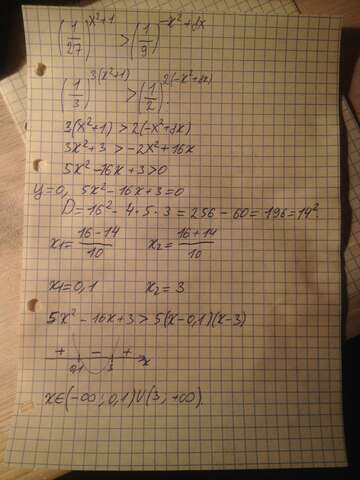 (1/27)^(x²+1) > (1/9)^(-x²+8x)
(1/3)^(3(x²+1)) > (1/2)^(2(-x²+8x)).
3(x²+1) > 2(-x²+8x)
3x²+3 > -2x²+16x
5x²-16x+3>0
y=0, 5x²-16x+3=0
D=16²-4·5·3=256-60=196=14²
x1=(16-14)/10 x2=(16+14)/10
x1=0,1 x2=3
5x²-16x+3>5(x-0,1)(x-3)
+ - +
0,1 3 x
x∈(-∞; 0,1)∪(3; +∞)